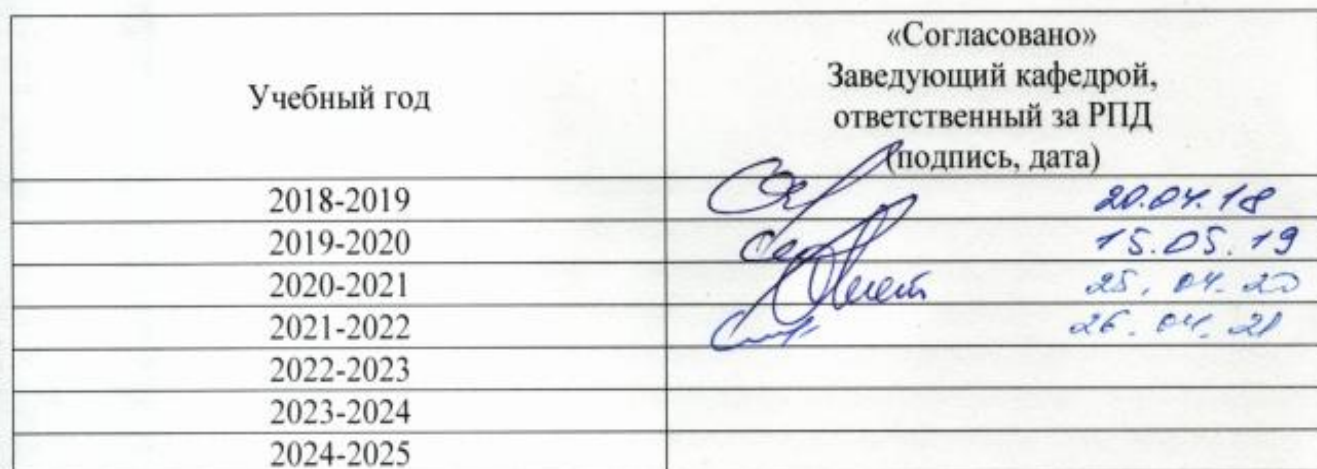 Учебный год
«Согласовано»
Заведующий кафедрой,
ответственный за РПД
(подпись, дата)
2018-2019 20.04.18
2019-2020 15.05.19
2020-2021 25.04.20
2021-2022 26.04.21
2022-2023
2023-2024
2024-2025